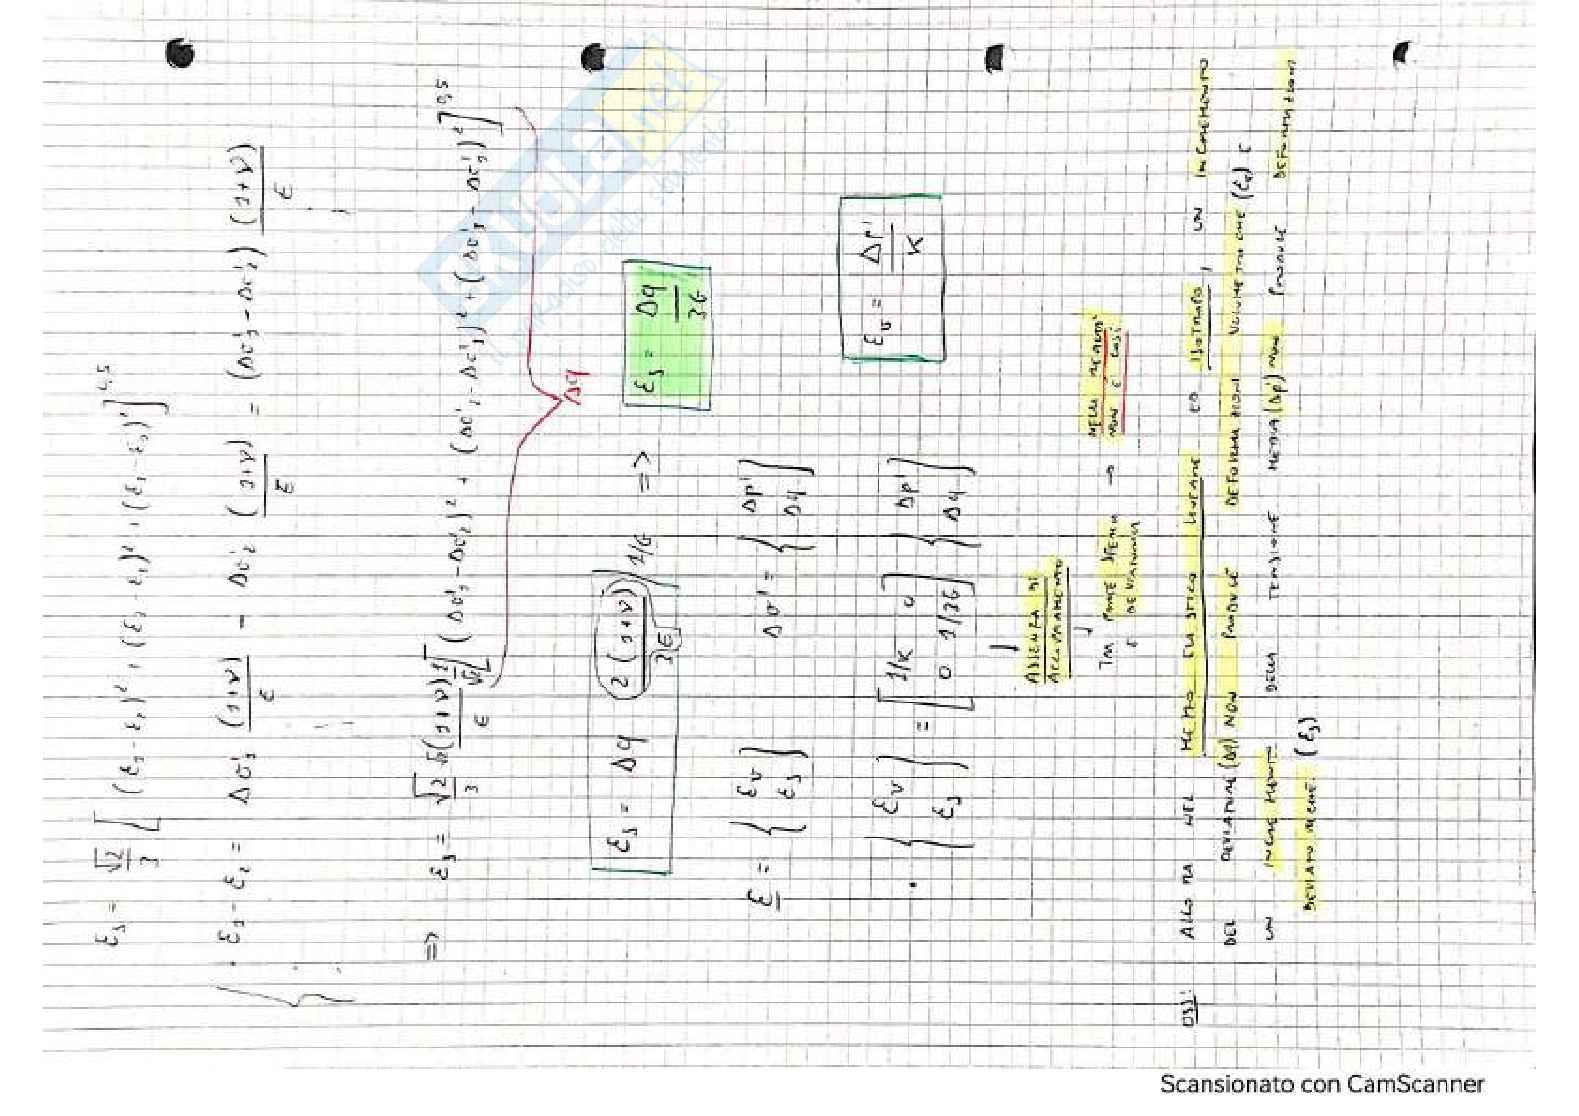 εs = √2/3 [(ε1 - ε2)² + (ε2 - ε3)² + (ε1 - ε3)²]^0,5
ε1 - ε2 = Δσ'1 (1+ν)/E - Δσ'2 (1+ν)/E = (Δσ'1 - Δσ'2) (1+ν)/E
=> εs = √2/3 √2 (1+ν)/E 1/√2 [(Δσ'1 - Δσ'2)² + (Δσ'2 - Δσ'3)² + (Δσ'1 - Δσ'3)²]^0,5
Δq
εs = Δq 2(1+ν)/3E 1/G => εs = Δq/3G
ε = {εv εs} Δσ' = {Δp' Δq}
εv = Δp'/K
{εv εs} = [1/K 0 0 1/3G] {Δp' Δq}
ASSENZA DI ACCOPPIAMENTO
TRA PARTE SFERICA E DEVIATORICA → NELLA REALTA' NON È COSÌ.
OSS: ALLORA NEL MEZZO ELASTICO LINEARE ED ISOTROPO, UN INCREMENTO
DEL DEVIATORE (Δq) NON PRODUCE DEFORMAZIONI VOLUMETRICHE (εv) E
UN INCREMENTO DELLA TENSIONE MEDIA (Δp') NON PRODUCE DEFORMAZIONI
DEVIATORICHE (εs)
SKUOLA.net
il paradiso dello studente
Scansionato con CamScanner